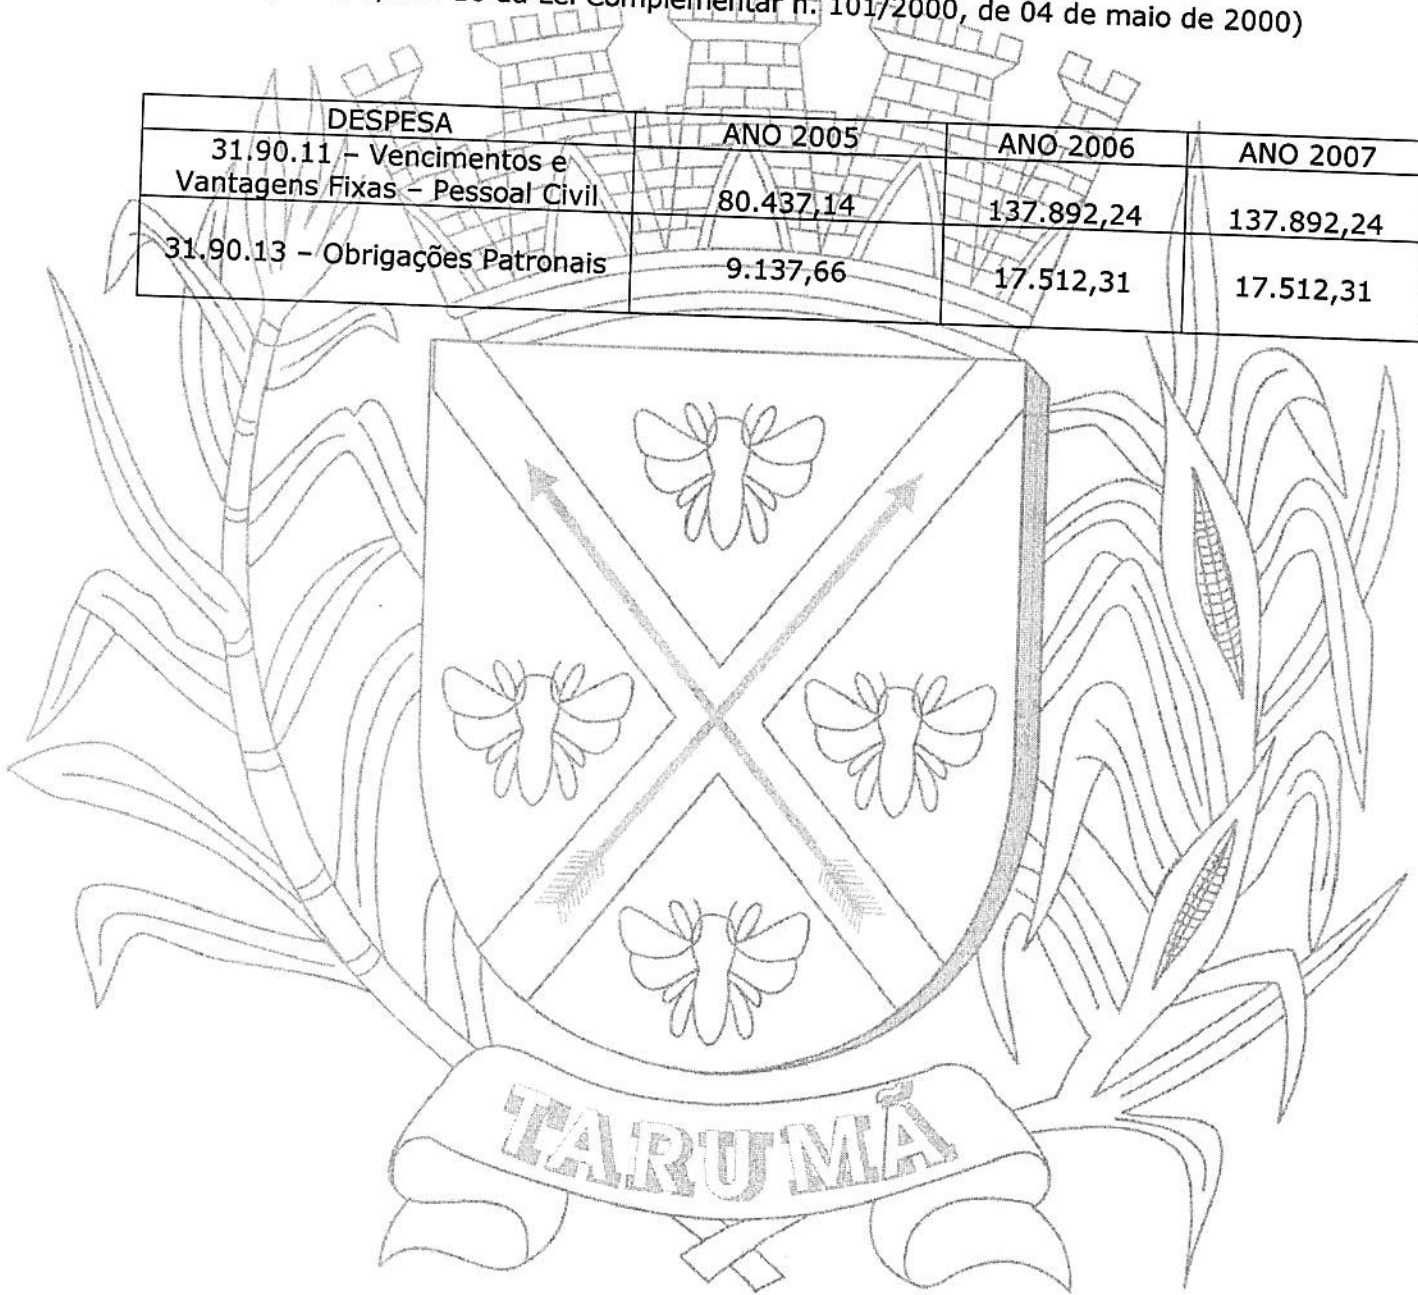 da Lei Complementar n. 101/2000, de 04 de maio de 2000)
DESPESA ANO 2005 ANO 2006 ANO 2007
31.90.11 – Vencimentos e
Vantagens Fixas – Pessoal Civil 80.437,14 137.892,24 137.892,24
31.90.13 – Obrigações Patronais 9.137,66 17.512,31 17.512,31
TARUMÃ